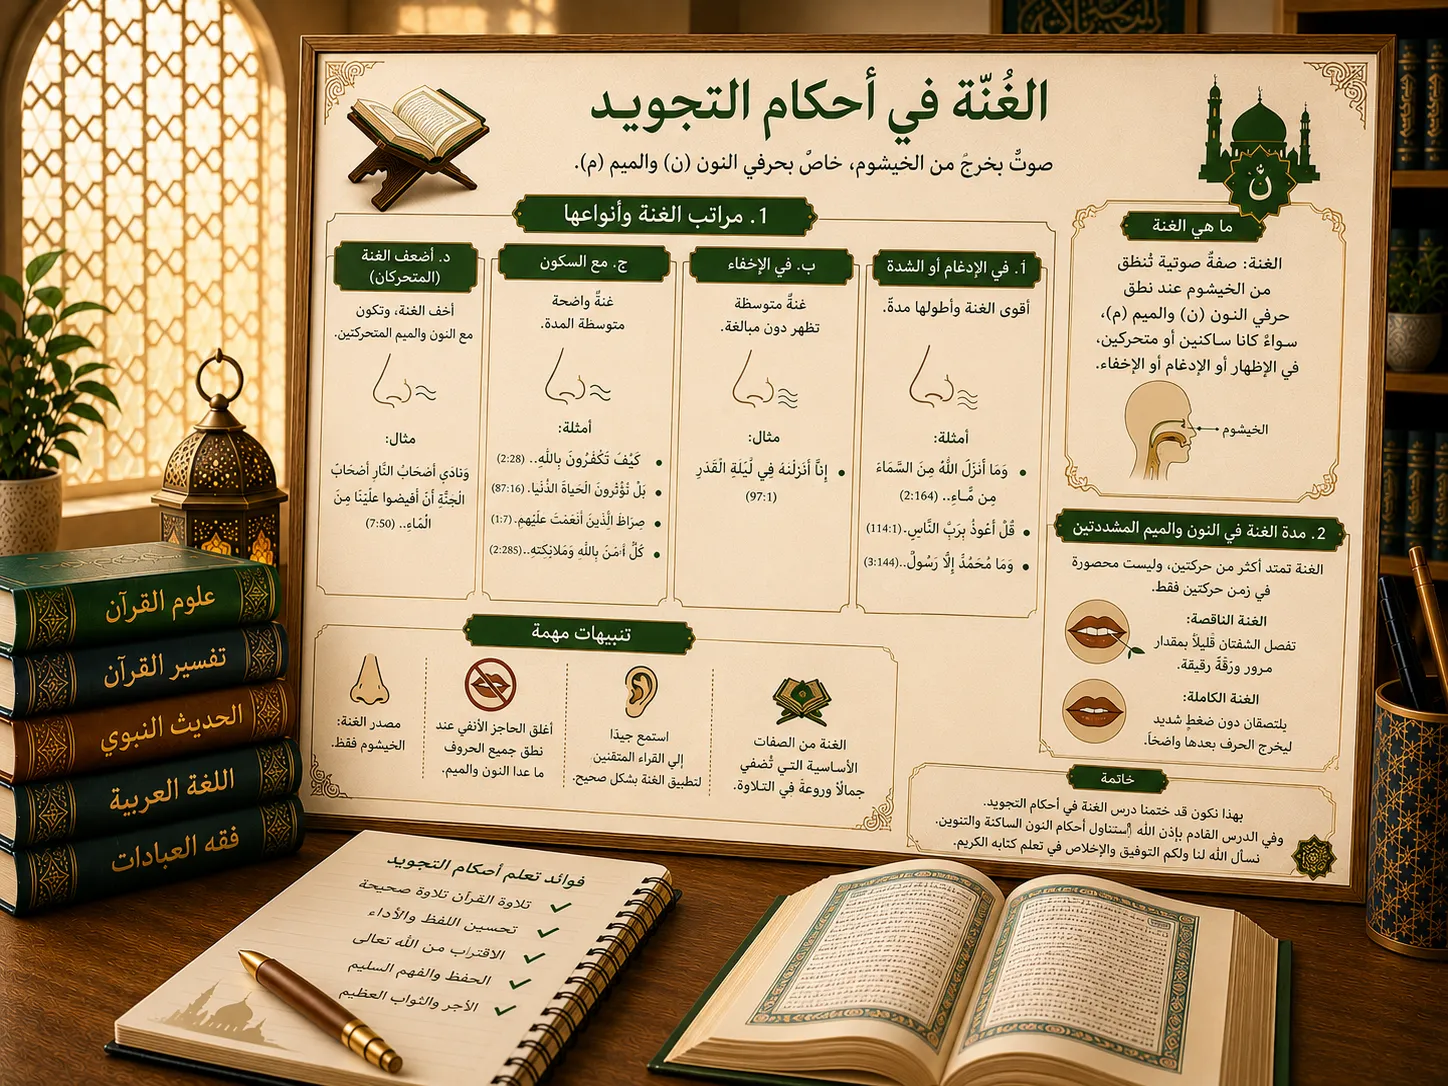 الغُنّة في أحكام التجويد
صوتٌ بخرجٌ من الخيشوم، خاصٌ بحرفي النون (ن) والميم (م).
نْ
ما هي الغنة
الغنة: صفةٌ صوتية تُنظق
من الخيشوم عند نطق
حرفي النون (ن) والميم (م)،
سواءً كانا ساكنين أو متحركين،
في الإظهار أو الإدغام أو الإخفاء.
الخيشوم
1. مراتب الغنة وأنواعها
أ. في الإدغام أو الشدة
أقوى الغنة وأطولها مدةً.
أمثلة:
• وَمَا أَنزَلَ اللَّهُ مِنَ السَّمَاءَ
مِن مَّـاءِ.. (2:164)
• قُلْ أَعوذُ بِرَبِّ النَّاسِ.(114:1)
• وَمَا مُحَمَّدٌ إِلَّا رَسُولٌ..(3:144)
ب. في الإخفاء
غنةٌ متوسظة
تظهر دون مبالغة.
مثال:
• إِنَّا أَنزَلْنهُ فِي لَيْلَةِ الْقَدْرِ
(97:1)
ج. مع السكون
غنةٌ واضحة
متوسظة المدة.
أمثلة:
• كَيْفَ تَكْفُرُونَ بِاللَّهِ.. (2:28)
• بَلْ تُؤْثَرونَ الْحَياةَ الدُّنْيا. (87:16)
• صِرَاطَ الَّذينَ أَنْعَمْتَ عَلَيْهِم. (1:7)
• كُلٌّ آمَنَ بِاللَّهِ وَمَلائِكتهِ.. (2:285)
د. أضعف الغنة
(المتحركان)
أخف الغنة، وتكون
مع النون والميم المتحركتين.
مثال:
وَنادَى أَصْحَابُ النَّارِ أَصْحَابُ
الْجَنَّةِ أَنْ أَفيضوا عَلَيْنَا مِنَ
الْمَاءِ.. (7:50)
2. مدة الغنة في النون والميم المشددتين
الغنة تمتد أكثر من حركتين، وليست محصورة
في زمن حركتين فقط.
الغنة الناقصة:
تفصل الشفتان قليلاً بمقدار
مرور ورَقَةً رقيقة.
الغنة الكاملة:
يلتصقان دون ضغطٍ شديد
ليخرج الحرف بعدها واضحًا.
تنبيهات مهمة
الغنة من الصفات
الأساسية التـي تُضفي
جمالًا وروعةً في التلاوة.
استمع جيدًا
إلي القراء المتقنين
لتطبيق الغنة بشكل صحيح.
أغلق الحاجز الأنفي عند
نطق جميع الحروف
ما عدا النون والميم.
مصدر الغنة:
الخيشوم فقط.
خاتمة
بهذا نكون قد ختمنا درس الغنة في أحكام التجويد.
وفي الدرس القادم بإذن الله استناول أحكام النون الساكنة والتنوين.
نسأل الله لنا ولكم التوفيق والإخلاص في تعلم كتابه الكريم.
علوم القرآن
تفسير القرآن
الحديث النبوي
اللغة العربية
فقه العبادات
فوائد تعلم أحكام التجويد
تلاوة القرآن تلاوة صحيحة
تحسين اللفظ والأداء
الاقتراب من الله تعالى
الحفظ والفهم السليم
الأجر والثواب العظيم